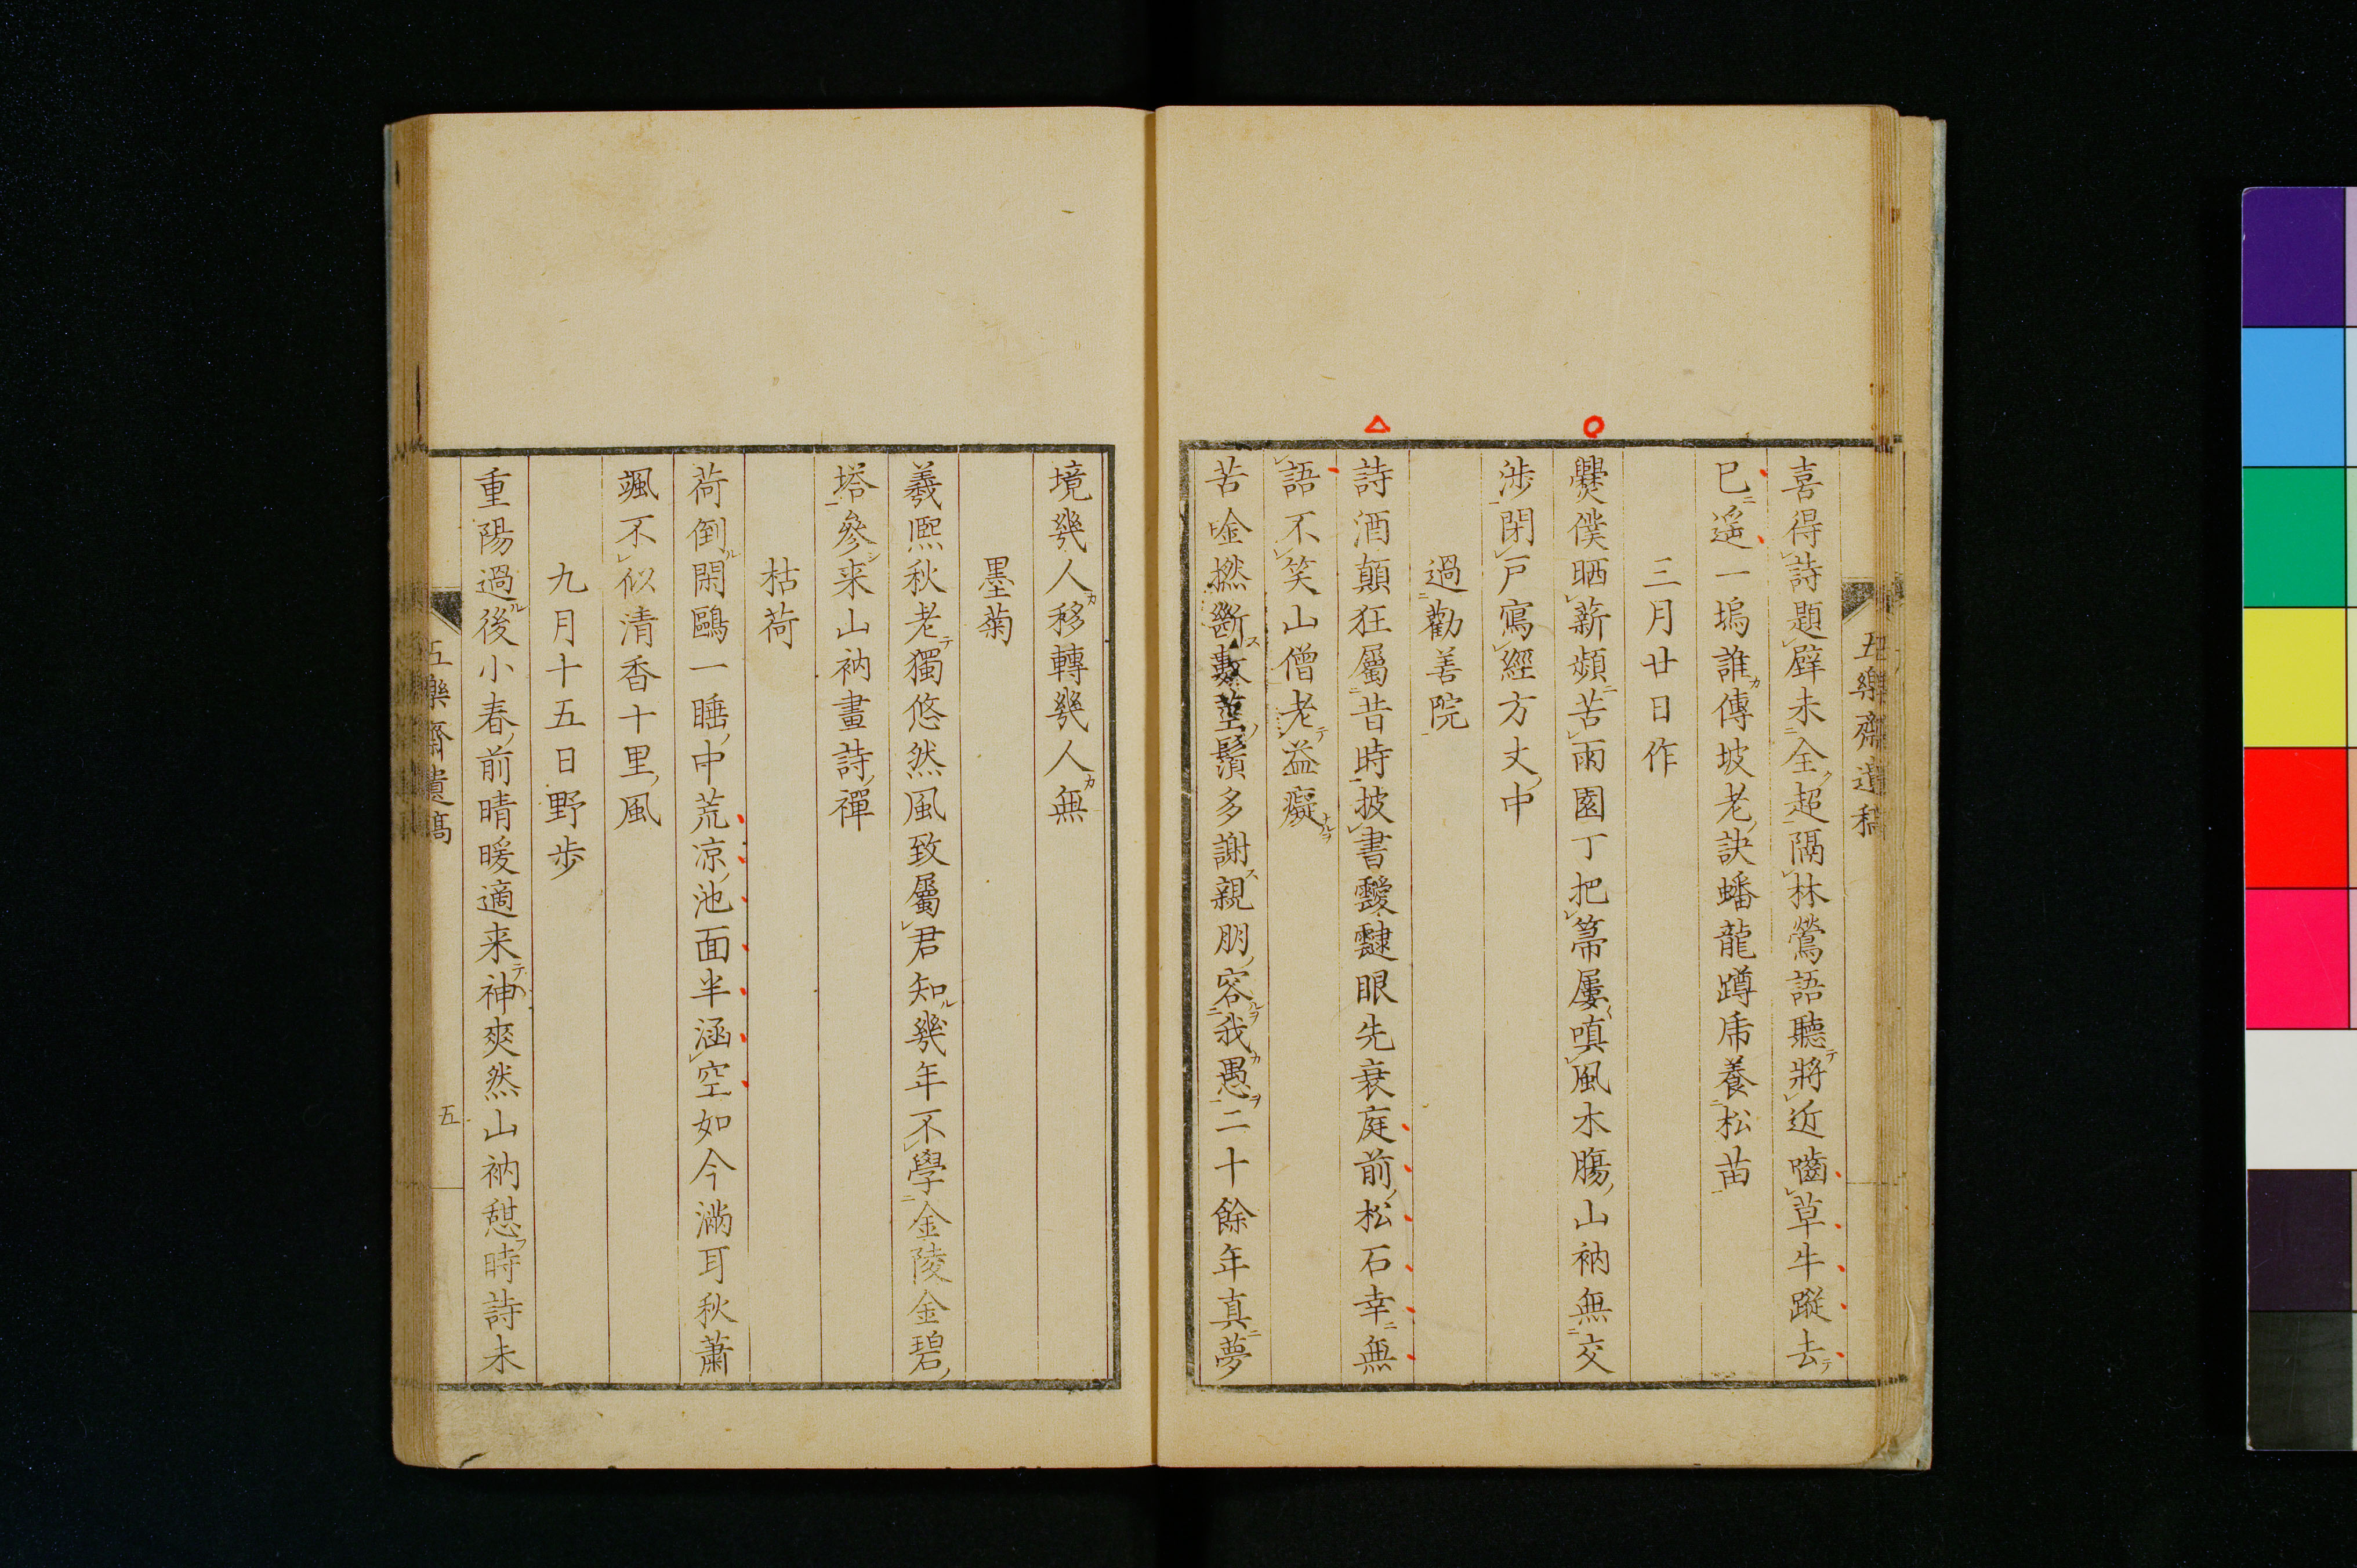 五樂齋遺稿
喜得詩題壁未全超隔林鶯語聽將近嚙草牛蹤去
已遥一塢誰傳坡老訣蟠龍蹲乕養松苗
三月廿日作
爨僕晒薪頻苦雨園丁把箒屢嗔風木腸山衲無交
渉閉戸寫經方丈中
過勸善院
詩酒顛狂屬昔時披書靉靆眼先衰庭前松石幸無
語不笑山僧老益癡
苦唫撚斷數莖鬚多謝親朋容我愚二十餘年真夢
境幾人移轉幾人無
墨菊
羲熙秋老獨悠然風致屬君知幾年不學金陵金碧
塔參来山衲畫詩禪
枯荷
荷倒閑鷗一睡中荒凉池面半涵空如今滿耳秋蕭
颯不似清香十里風
九月十五日野歩
重陽過後小春前晴暖適来神爽然山衲憩時詩未
五樂齋遺稿
五